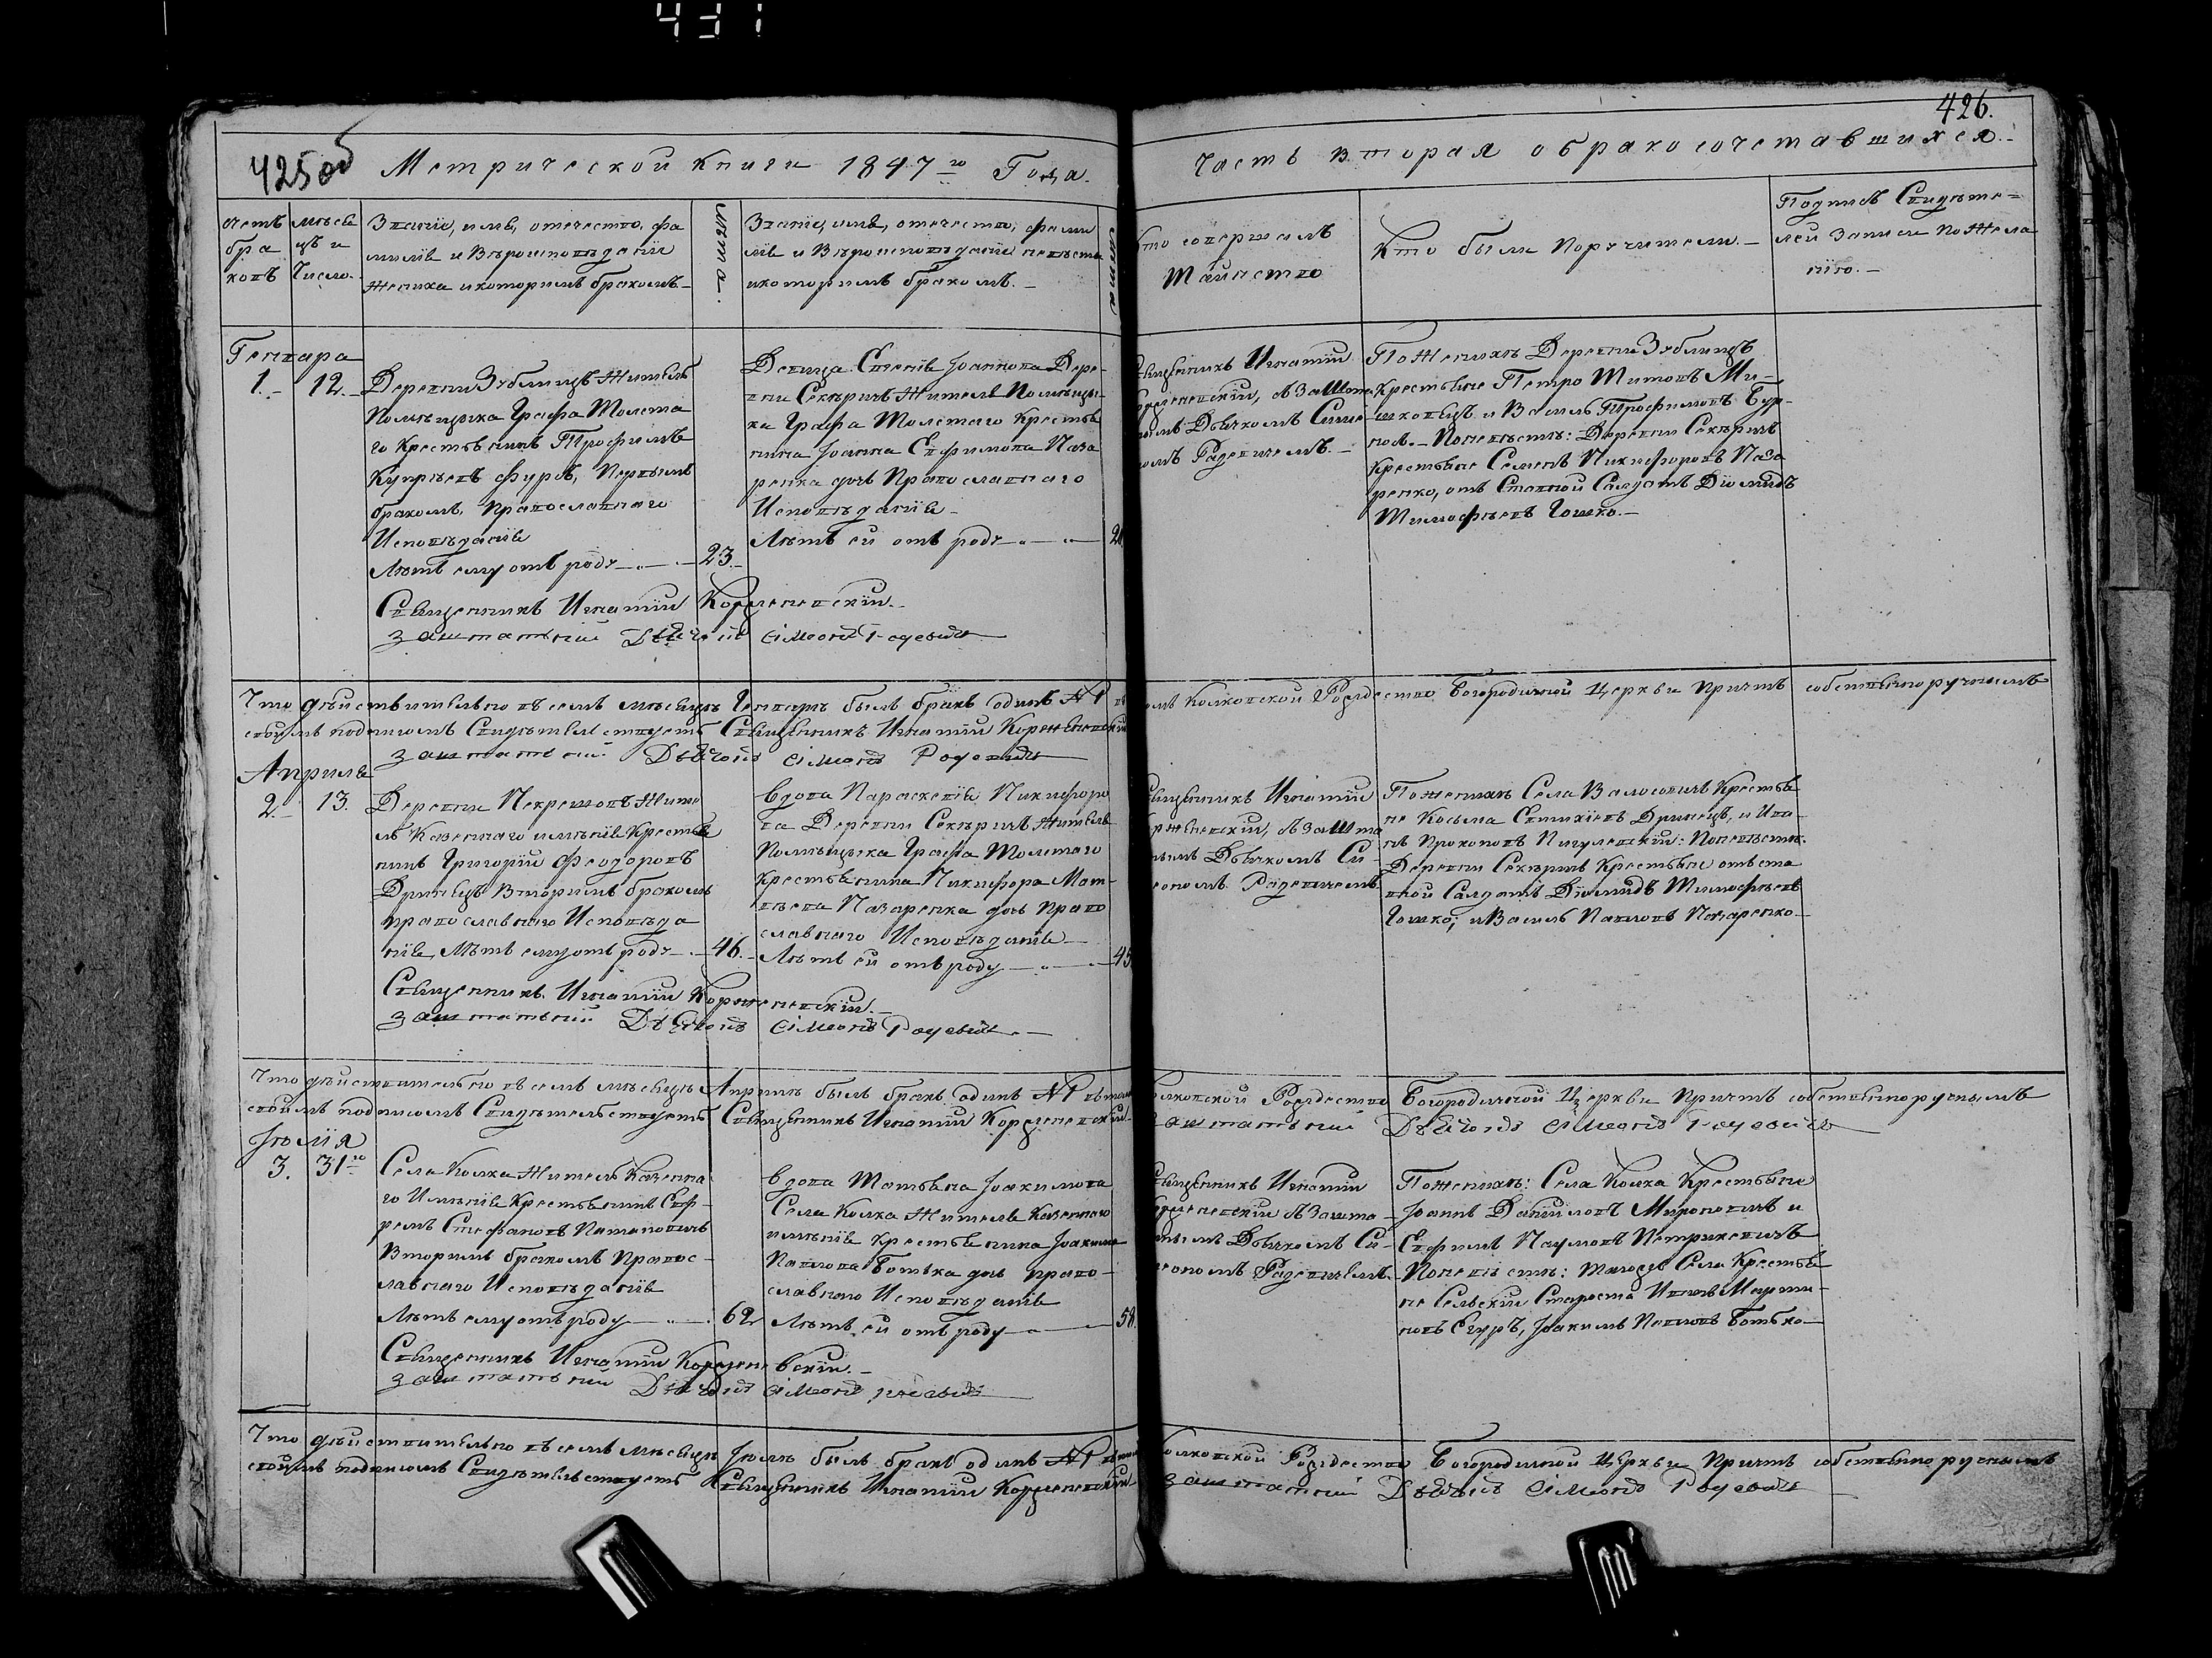 431
425 об
Метрической книги 1847го Года.
Часть вторая о бракосочетавшихся.
426.
Счетъ бра ковъ
Мѣся цъ и Число.
Званіе, имя, отечество, фа
милія и Вѣроисповѣданіе
жениха и которымъ бракомъ
Лѣта.
Званіе, имя, отечество, фами
лія и Вѣроисповѣданіе невѣсты
и которымъ бракомъ.
Лѣта
Кто совершалъ
таинство
Кто были Поручители.
Подпись Свидѣте-
лей Записи по Жела
нію.
Генвара
1. 12.
Деревни Зяблицъ житель
Помѣщика Графа Толста
го Крестьянинъ Трофимъ
Купріевъ Фуръ, Первымъ
бракомъ, Православнаго
Исповѣданія
Лѣтъ ему отъ роду 23.
Девица Стефія Іоаннова Дере-
вни Секѣричъ жителя Помѣщи-
ка Графа Толстаго Крестья
нина Іоанна Ефимова Наза
ренка дочь Православнаго
Исповѣданія
Лѣтъ ей отъ роду
Священникъ Игнатій
съ Зашта
нымъ Дьячкомъ Симе
ономъ Радевичемъ.
По Женихѣ Деревни Зяблицъ
Крестьяне Петро Титовъ Ми-
шковецъ и Василь Трофимовъ Бур-
По невѣстѣ: Деревни Секѣричъ
Крестьяне Семенъ Никифоровъ Наза
ренко, отъ Ставной Салдатъ Діомидъ
Тимофѣевъ Гошко.
Священникъ Игнатій Корженевскій.
заштатный Дьячокъ Симеонъ Радевичъ
Что дѣйствительно въ семъ мѣсяцѣ Генварѣ былъ бракъ одинъ № 1 въ томъ Колковской Рождество Богородичной Церкви Причтъ собственноручнымъ
своимъ подписомъ Свидѣтельствуетъ Священникъ Игнатій Корженевскій
заштатный Дьячокъ Симеонъ Радевичъ
Априля
2. 13.
Деревни Некрешовъ жите
ль Казеннаго имѣнія Крестья
нинъ Григорій Феодоровъ
Дринецъ Вторымъ бракомъ
православнаго Исповѣда
нія, Лѣтъ ему отъ роду 46.
вдова Параскевія Никифоро
ва Деревни Секѣричъ жителя
Помѣщика Графа Толстаго
Крестьянина Никифора Мат-
вѣева Назаренка дочь право
славнаго Исповѣданія
Лѣтъ ей отъ роду 45
Священникъ Игнатій
Корженевскій, съ Зашта
нымъ Дьячкомъ Си-
меономъ Радевичемъ
По женихѣ Села Валосовичъ Крестья
не Козьма Евтихіевъ Дринецъ, и Ива-
нъ Прокоповъ Пигулевскій: По невѣстѣ
Деревни Секѣричъ Крестьяне отъ ста
вной Салдатъ Діомидъ Тимофѣевъ
Гошко; и Василь Павловъ Назаренко
Священникъ Игнатій Корженевскій.
заштатный Дьячокъ Симеонъ Радевичъ
Что дѣйствительно въ семъ мѣсяцѣ Априлѣ былъ бракъ одинъ № 1 въ томъ Колковской Рождество Богородичной Церкви Причтъ собственноручнымъ
своимъ подписомъ Свидѣтельствуетъ Священникъ Игнатій Корженевскій заштатный Дьячокъ Симеонъ Радевичъ
Іюлія
3. 31го
Села Колка житель Казенна
го Имѣнія Крестьянинъ Еф-
ремъ Стефановъ Потаповичъ
Вторымъ бракомъ Правос-
лавнаго Исповѣданія
Лѣтъ ему отъ роду 62
вдова Татьяна Іоакимова
Села Колка жителя Казеннаго
имѣнія крестьянина Іоакима
Павлова Ботька дочь право-
славнаго Исповѣданія
Лѣтъ ей отъ роду 58.
Священникъ Игнатій
Корженевскій съ Зашта-
нымъ Дьячкомъ Си-
меономъ Радевичемъ.
По женихѣ: Села Колка Крестьяне
Іоаннъ Даниловъ Мироновичъ и
Ефимъ Наумовъ Петрикевичъ
По невѣстѣ: тагожъ Села Крестья
не Сельскій Староста Иванъ Марти-
новъ Сгуръ, Іоакимъ Павловъ Ботько
Священникъ Игнатій Корженевскій.
заштатный Дьячокъ Симеонъ Радевичъ
Что дѣйствительно въ семъ мѣсяцѣ Іюлѣ былъ бракъ одинъ № 1 въ томъ Колковской Рождество Богородичной Церкви Причтъ собственноручнымъ
своимъ подписомъ Свидѣтельствуетъ Священникъ Игнатій Корженевскій заштатный Дьячокъ Симеонъ Радевичъ